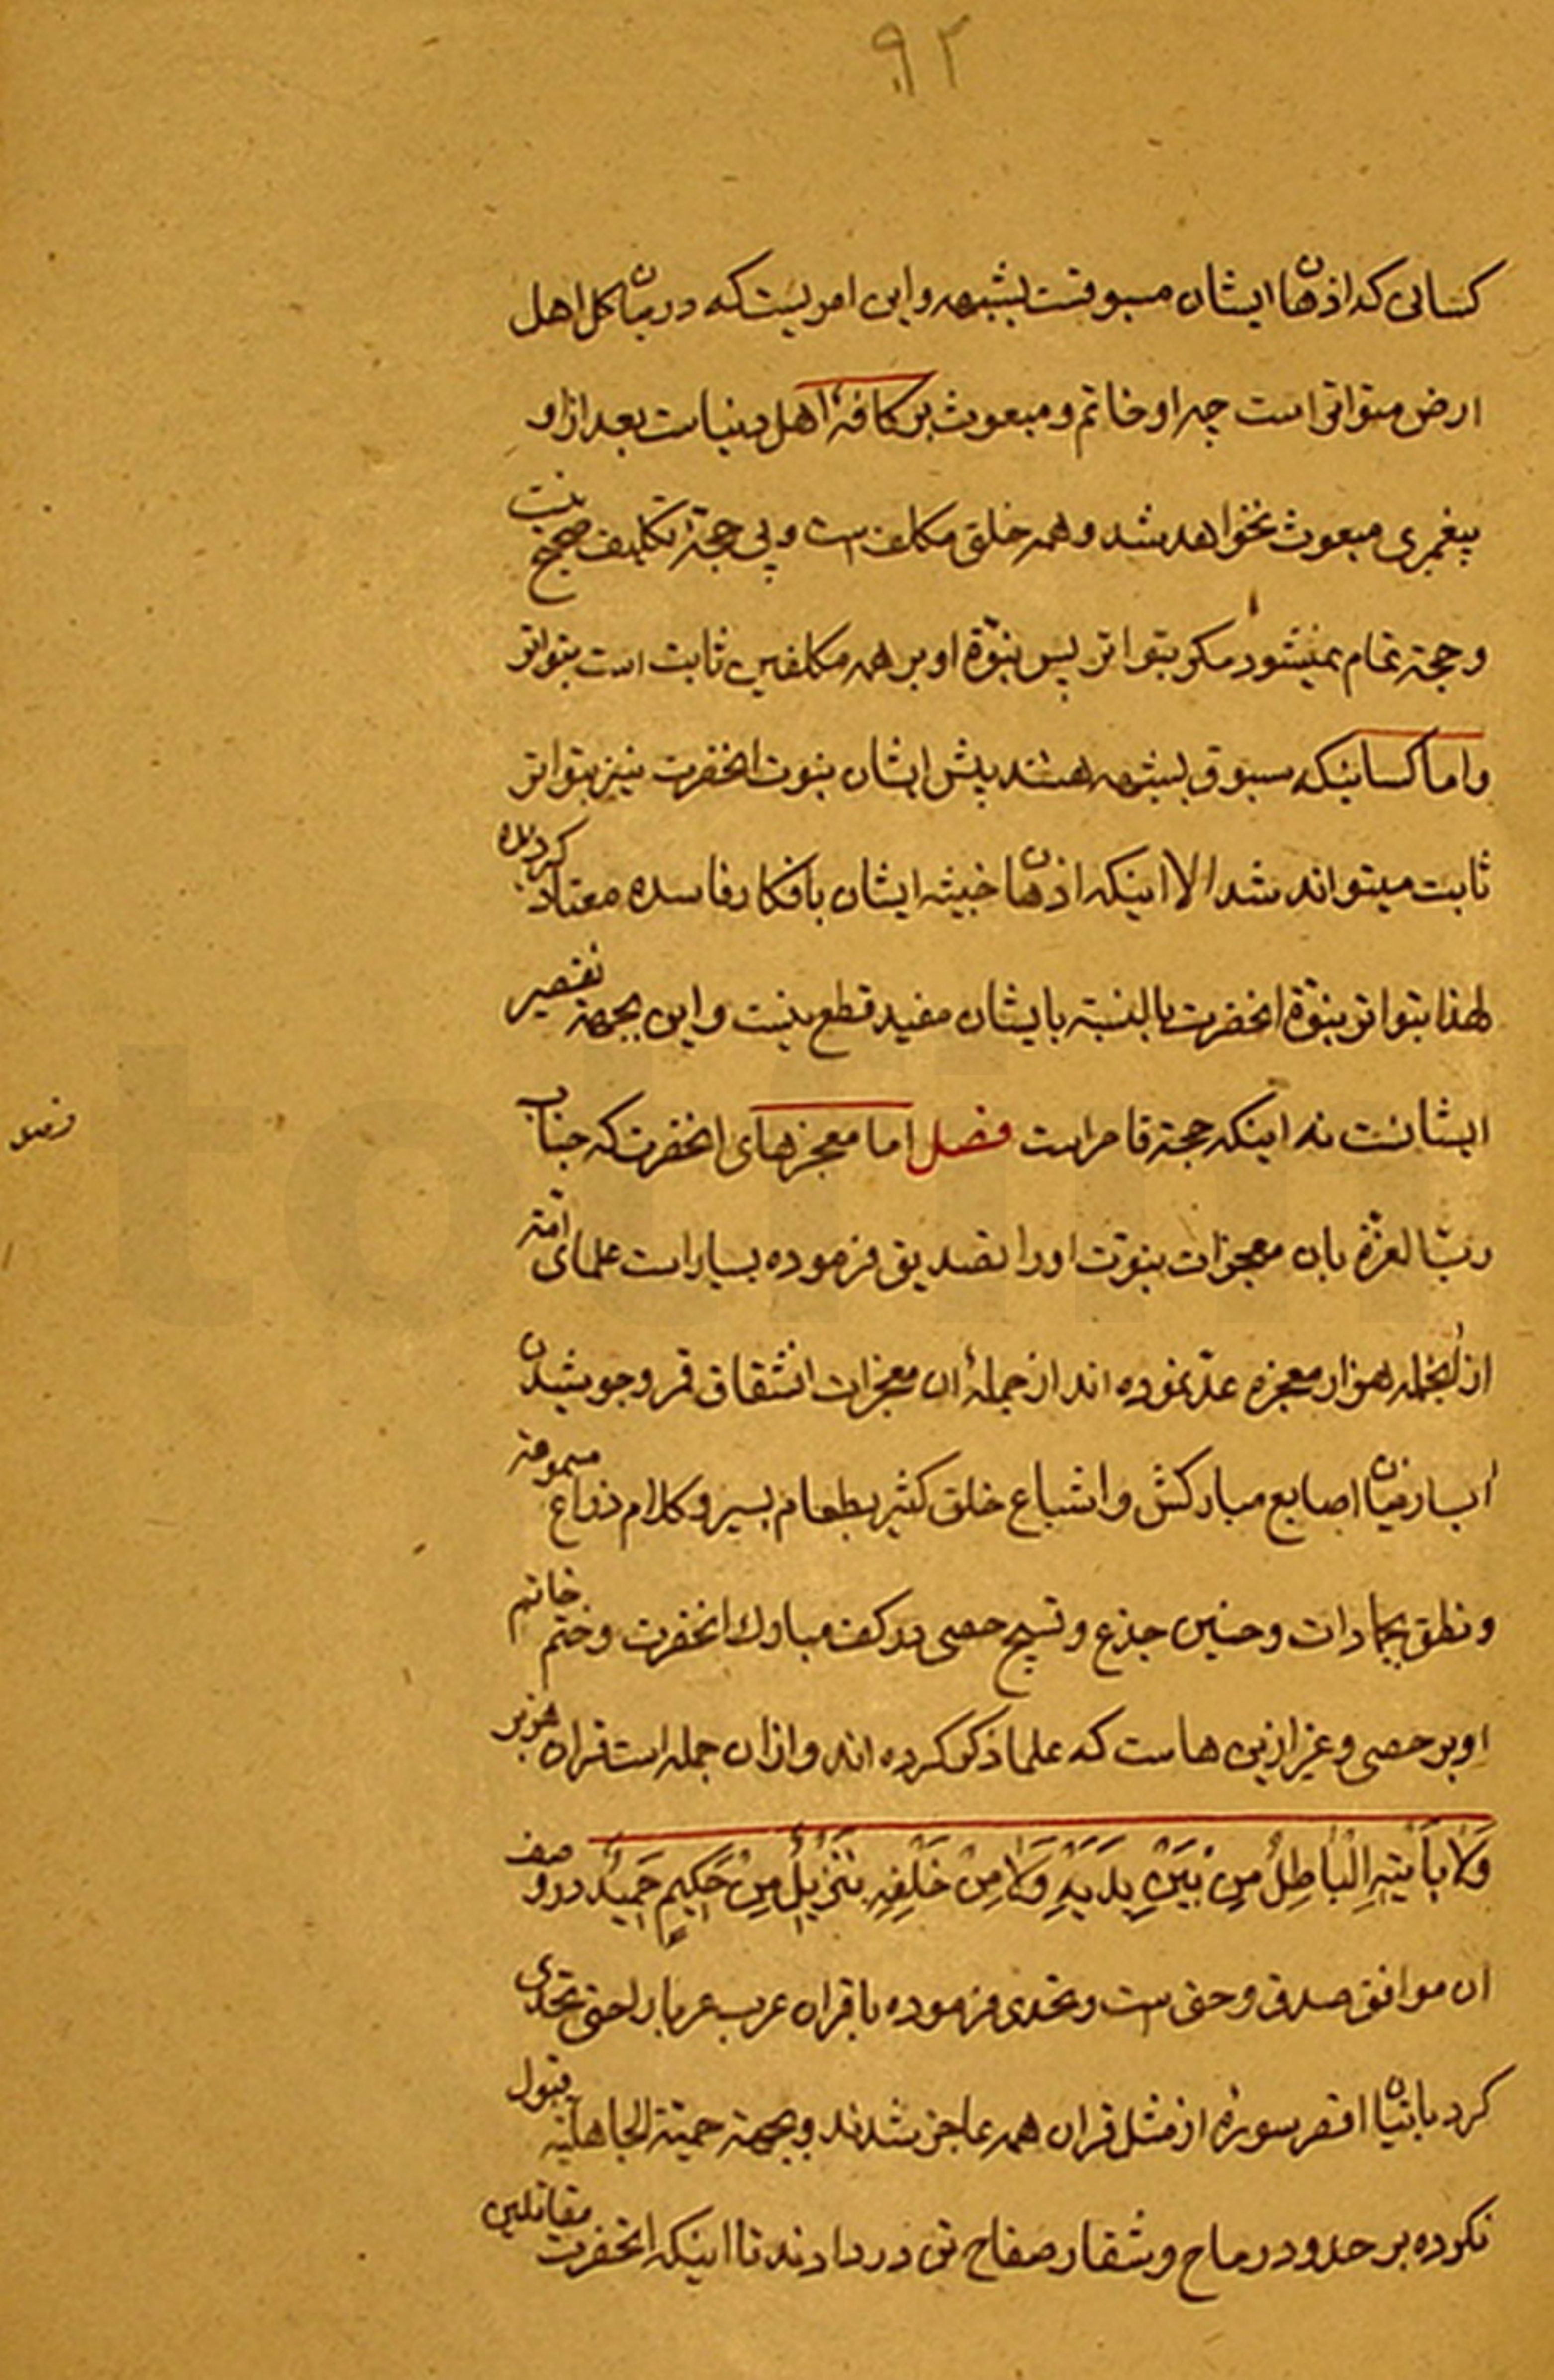 ٩٢
کسانی که اذهان ایشان مسبوقست بشبهه و این امریست که در میان کل اهل
ارض متواتر است چه او خاتم و مبعوث بر کافهٔ اهل دنیاست بعد از او
پیغمبری مبعوث نخواهد شد و همه خلق مکلف است و بی حجة تکلیف صحیح نیست
و حجة تمام نمیشود مکر بتواتر پس نبوّة او بر همه مکلفین ثابت است بتواتر
و اما کسانیکه مسبوق بشبهه هستند پیش ایشان نبوت انحضرت نیز بتواتر
ثابت میتواند شد الا اینکه اذهان خبیثه ایشان بافکار فاسده معتاد کردیده
لهذا بتواتر نبوّة انحضرت بالنسبة بایشان مفید قطع نیست و این بجهة تقصیر
ایشانست نه اینکه حجة قاصر است فصل اما معجزهای انحضرت که جناب
فصل
ربّ العزّة بان معجزات نبوّت او را تصدیق فرموده بسیار است علمای امّة
از انجمله هزار معجزه عدّ نموده اند از جملهٔ ان معجزات انشقاق قمر و جوشیدن
اب از میان اصابع مبارکش و اشباع خلق کثیر بطعام یسیر و کلام ذراع مسمومة
و نطق بجمادات و حنین جذع و تسبیح حصی در کف مبارک انحضرت و ختم خاتم
او بر حصی و غیر ازین هاست که علما ذکر کرده اند و از ان جمله است قران عزیز
وَلَا یَأتیهِ الْبَاطِلُ مِنْ بَیْنِ یَدَیْهِ وَلَا مِنْ خَلْفِهِ تَنْزِیلٌ مِنْ حَکِیمٍ حَمِیدٍ در وصف
ان موافق صدق و حق است و تحدی فرموده با قران عرب عربا را حتی تحدی
کرد باتیان اقصر سورهٔ از مثل قران همه عاجز شدند و بجهة حمیّة الجاهلیّة قبول
نکرده بر حدود رماح و شفار صفاح تن در دادند تا اینکه انحضرت مقاتلین